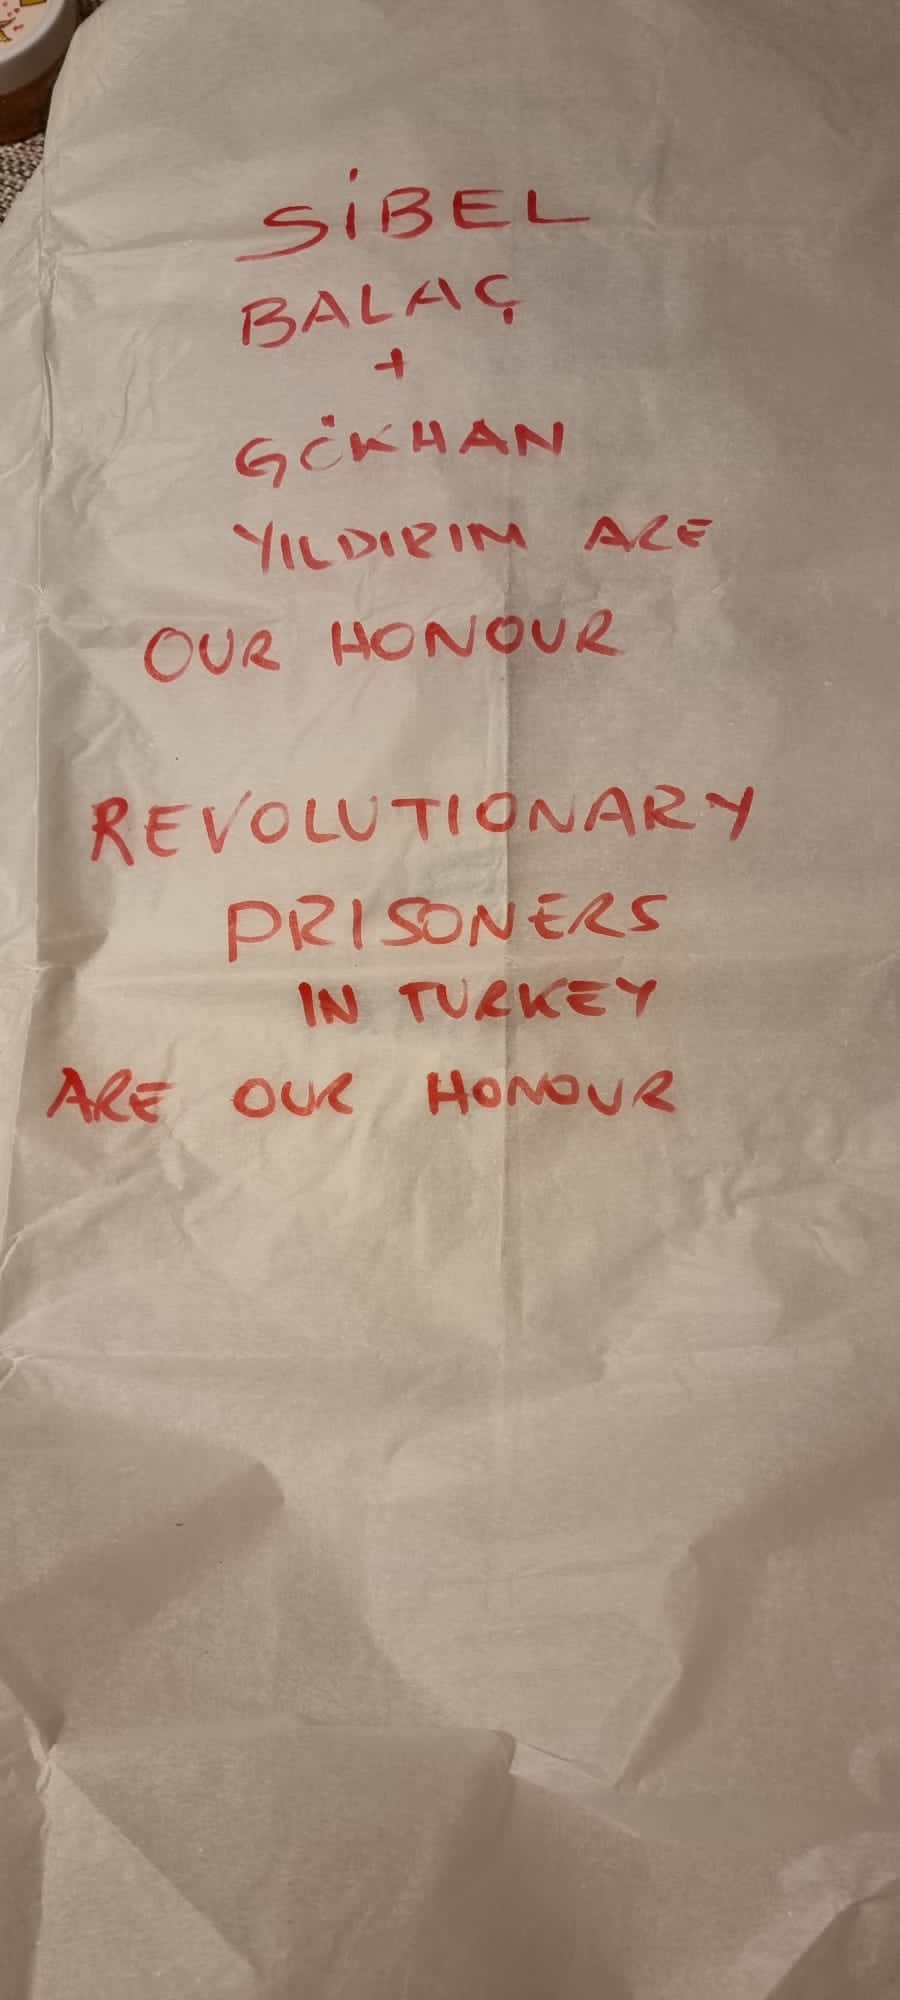 SİBEL
BALAÇ
+
GÖKHAN
YILDIRIM ARE
OUR HONOUR
REVOLUTIONARY
PRISONERS
IN TURKEY
ARE OUR HONOUR